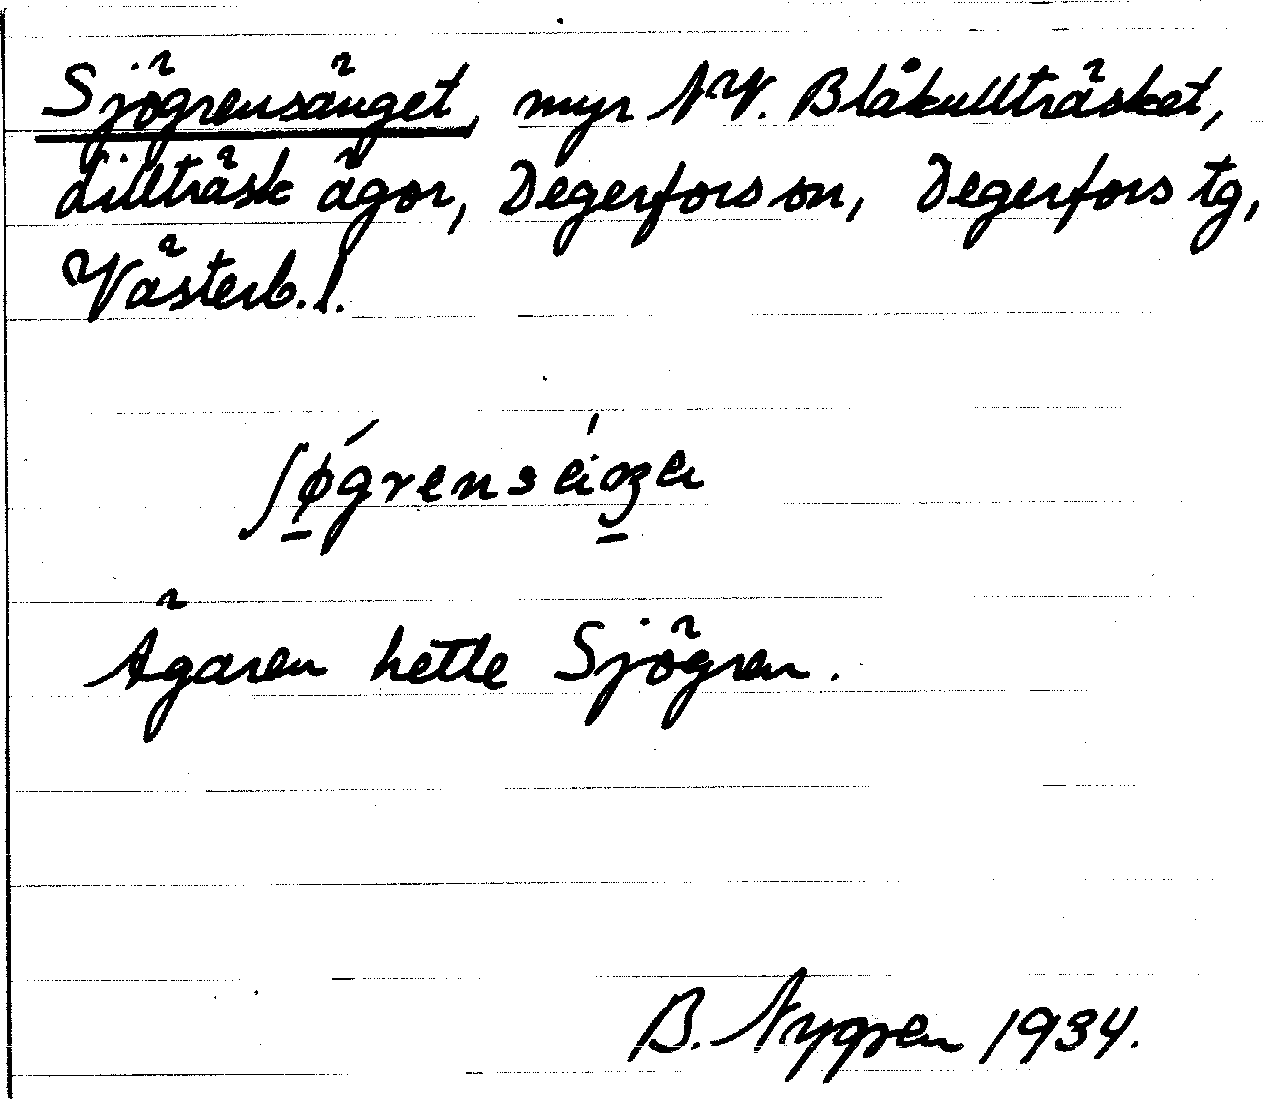 Sjögrensänget, myr NV. Blåkullträsket,
Lillträsk ägor, Degerfors sn, Degerfors tg,
Västerb. l.
Ägaren hette Sjögren.
B. Nygren 1934.